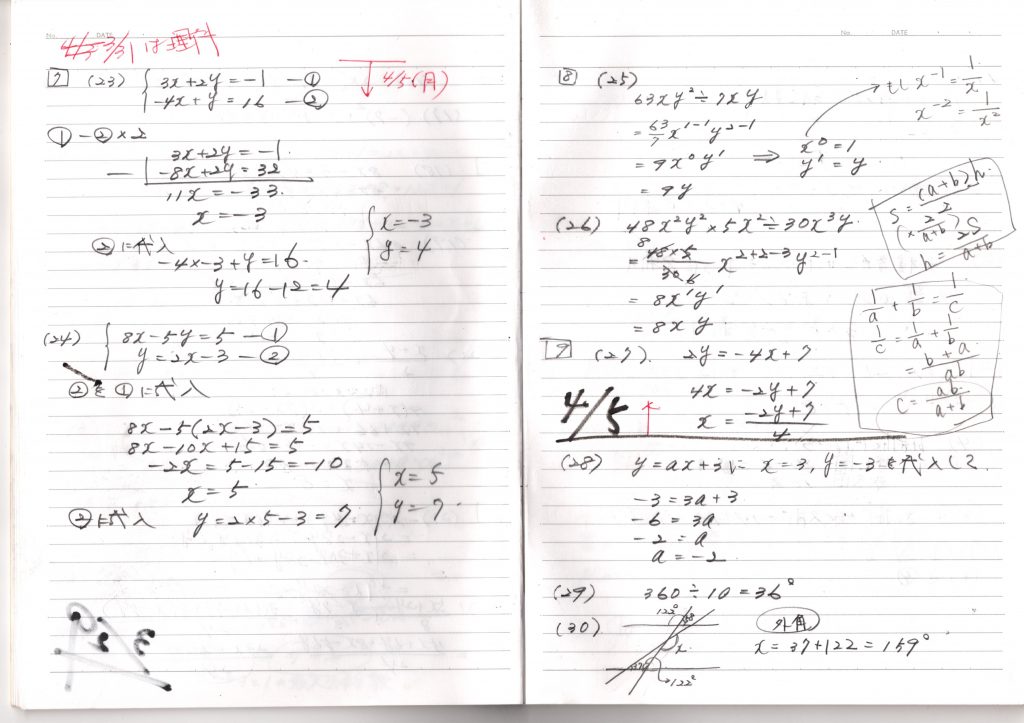 No. DATE
4/5 3/31は理科
4/5(月)
7 (23) { 3x+2y=-1 —①
-4x+y=16 —②
①-②×2
3x+2y=-1
— -8x+2y=32
11x=-33
x=-3
②に代入
-4×-3+y=16
y=16-12=4
{ x=-3
y=4
(24) { 8x-5y=5 —①
y=2x-3 —②
②を①に代入
8x-5(2x-3)=5
8x-10x+15=5
-2x=5-15=-10
x=5
②に代入 y=2×5-3=7
{ x=5
y=7
No. DATE
8 (25)
63xy²÷7xy
=63/7 x¹⁻¹y²⁻¹
=9x⁰y¹ ⇒ x⁰=1
y¹=y
=9y
もし x⁻¹=1/x
x⁻²=1/x²
(26) 48x²y²×5x²÷30x³y
=48×5/30 x²⁺²⁻³y²⁻¹
8
6
=8x¹y¹
=8xy
S=(a+b)h/2
(×2/a+b)
h=2S/a+b
1/a+1/b=1/c
1/c=1/a+1/b
=b+a/ab
c=ab/a+b
9 (27). 2y=-4x+7
4x=-2y+7
x=-2y+7/4
4/5
(28) y=ax+3に x=3, y=-3を代入して
-3=3a+3
-6=3a
-2=a
a=-2
(29) 360÷10=36°
(30)
122°
x
37°
122°
外角
x=37+122=159°